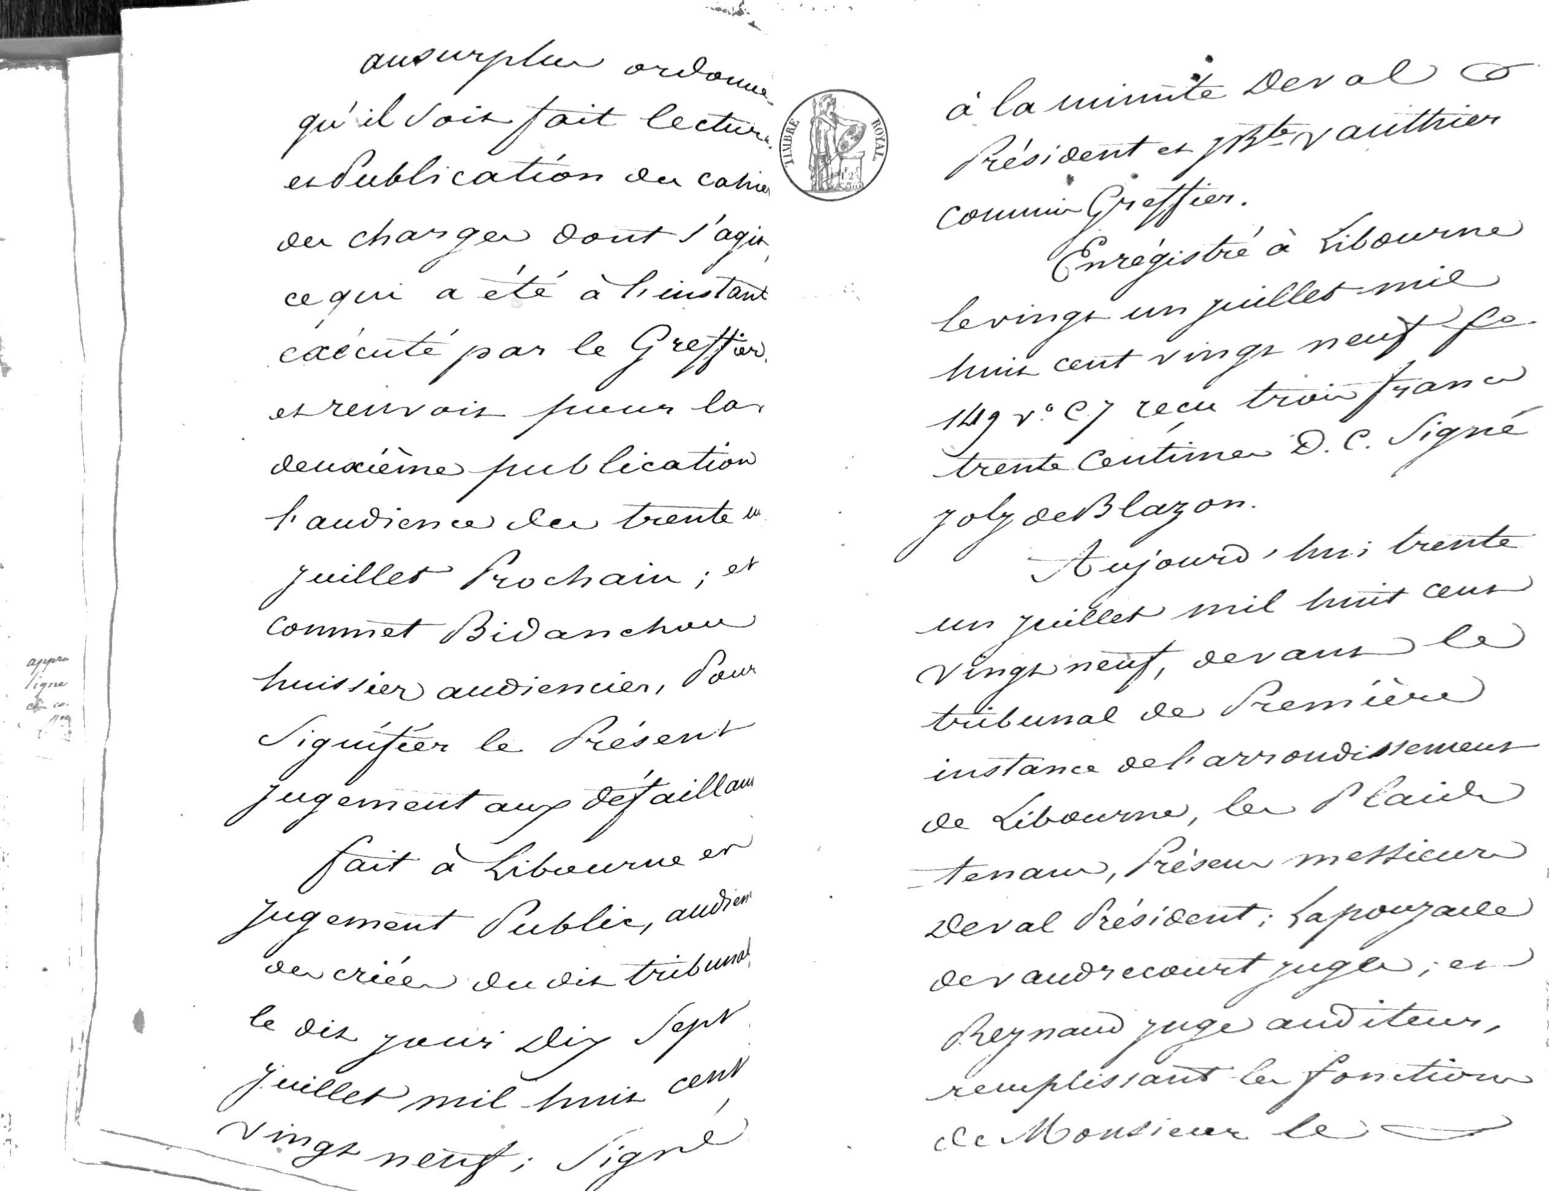 au surplus ordonne
qu'il soit fait lecture
et Publication du cahier
des charges dont s'agit,
ce qui a été à l'instant
éxécuté par le Greffier,
et renvoit pour la
deuxième publication
l'audience du trente un
juillet Prochain; et
commet Bidanchou
huissier audiencier, Pour
Signifier le Présent
jugement aux défaillans
fait à Libourne en
jugement Public, audience
des criées du dit tribunal
le dit jour Dix Sept
juillet mil huit cent
vingt neuf; Signé
appro
signe
TIMBRE ROYAL
à la minute Deval
Président et J Bte Vauthier
commis Greffier.
Enrégistré à Libourne
le vingt un juillet mil
huit cent vingt neuf fo
149 vo C 7 reçu trois francs
trente Centimes D. C. Signé
Joly de Blazon.
Aujourd'hui trente
un juillet mil huit cent
vingt neuf, devant le
tribunal de Première
instance de l'arrondissement
de Libourne, les Plaids
-tenans, Présens messieurs
Deval Président; Lapouyade
de vaudrecourt juge; et
Reynaud juge auditeur,
remplissant les fonctions
de Monsieur le